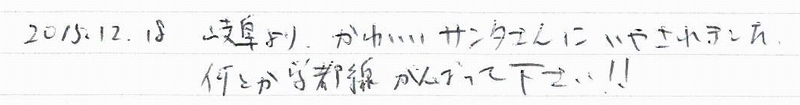 2015.12.18 岐阜より. かわいいサンタさんにいやされました.
何とか学都線がんばって下さい!!